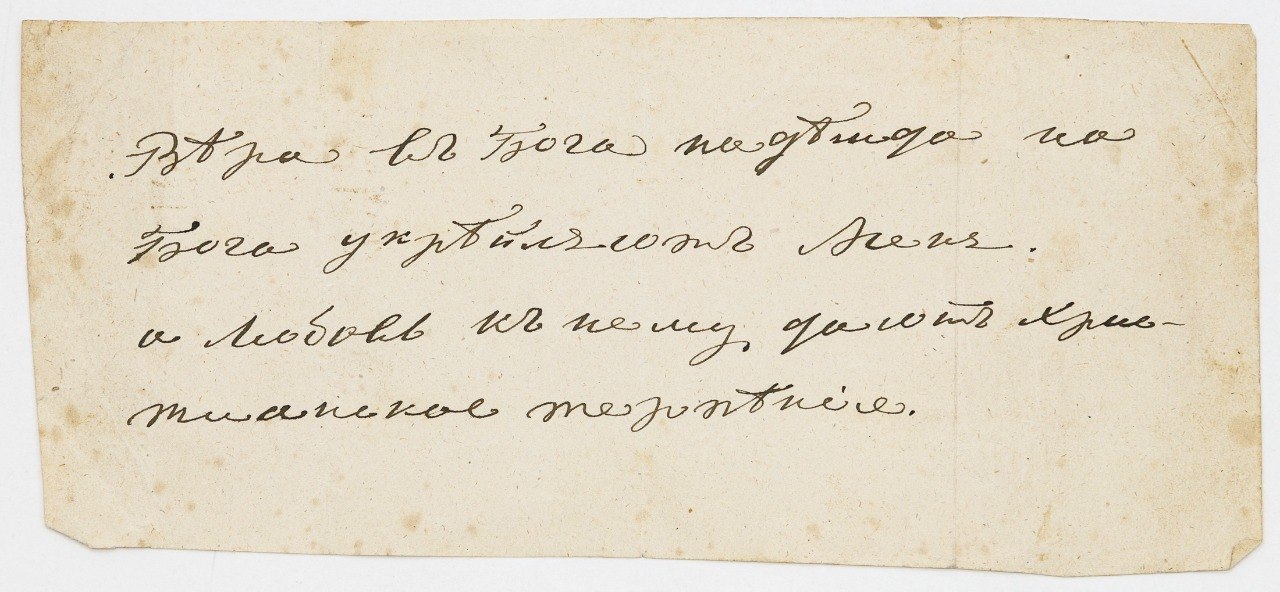 Вѣра въ Бога надѣжда на
Бога укрѣпляютъ Меня.
а Любовь къ нему, даютъ Хрис-
тианское терпѣніе.